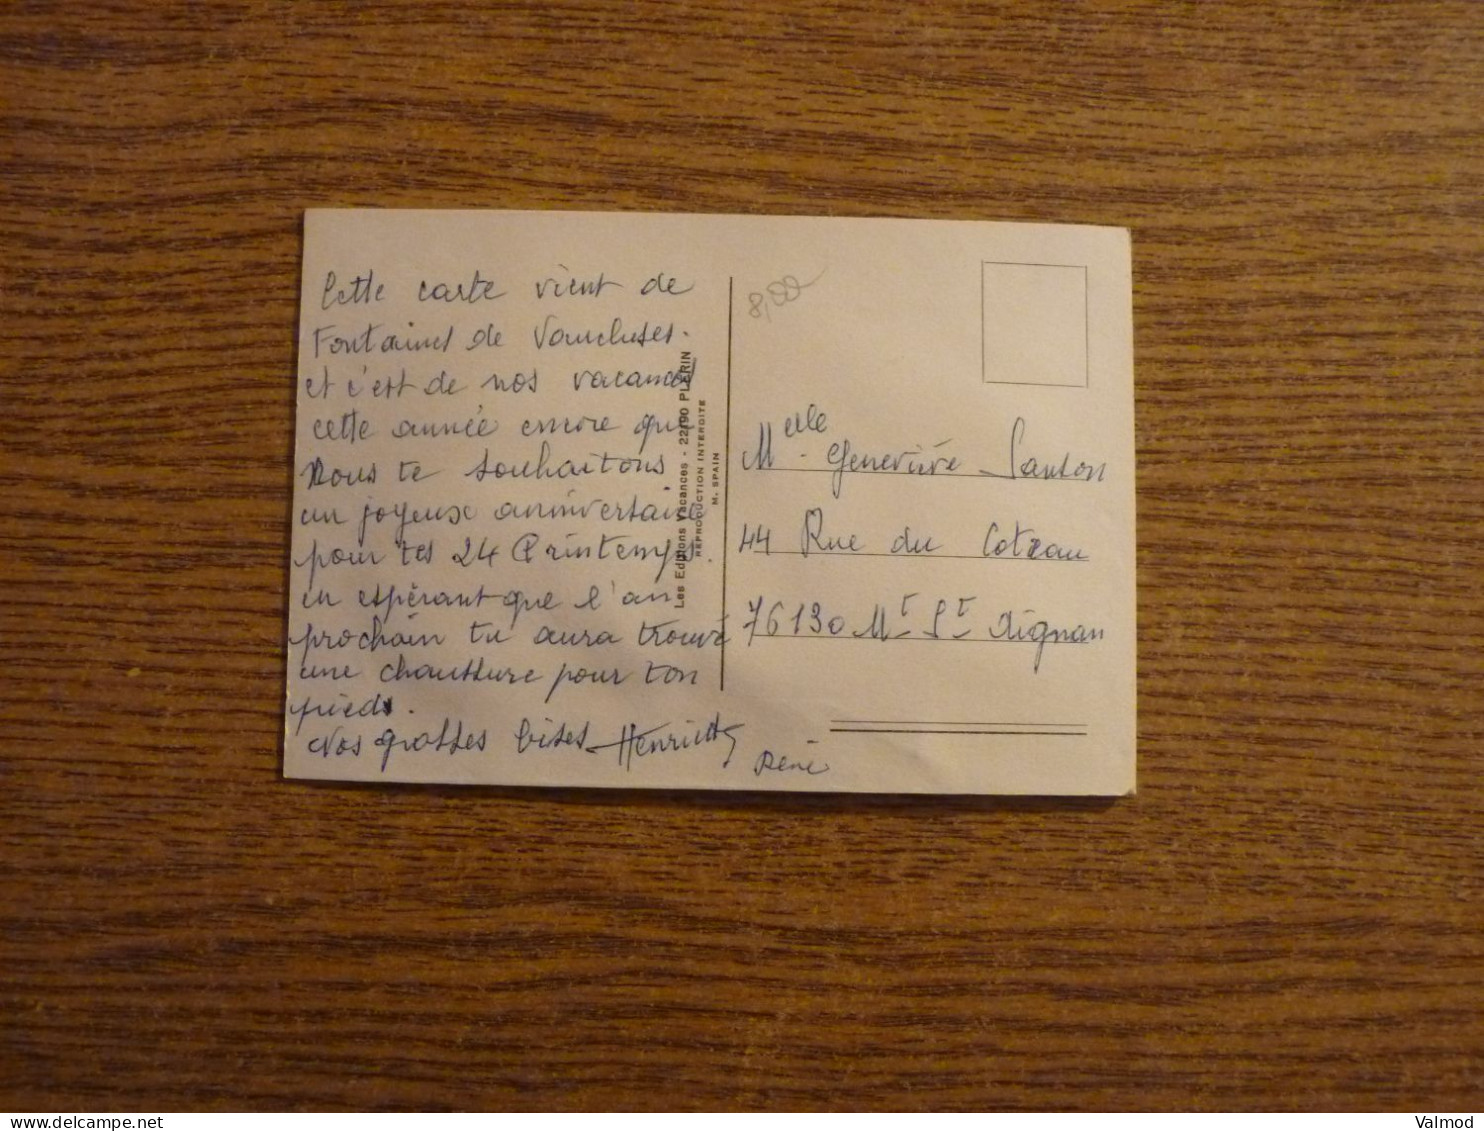 Cette carte vient de
Fontaines de Vaucluses.
et c'est de nos vacances
cette année encore que
Nous te souhaitons
un joyeux anniversaire
pour tes 24 Printemps.
en espérant que l'an
prochain tu aura trouvé
une chaussure pour ton
pieds.
Nos grosses bises Henriette
René
Les Editions Vacances - 22190 PLERIN
REPRODUCTION INTERDITE
M. SPAIN
8,00
Melle Geneviève Santon
44 Rue du Coteau
76130 Mt St Aignan
delcampe.net
Valmod